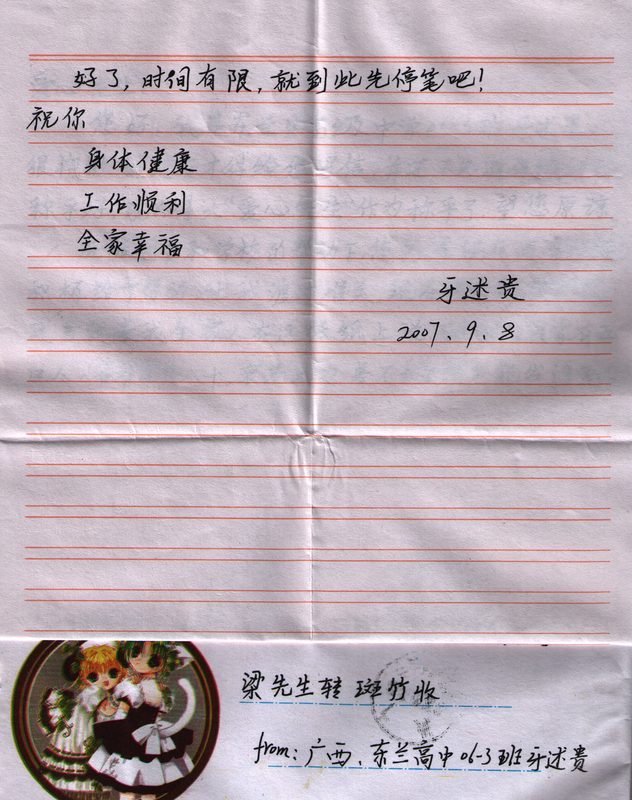 好了,时间有限,就到此先停笔吧!
祝你
身体健康
工作顺利
全家幸福
牙述贵
2007、9、8
梁先生转 斑竹收
from:广西、东兰高中06-3班牙述贵